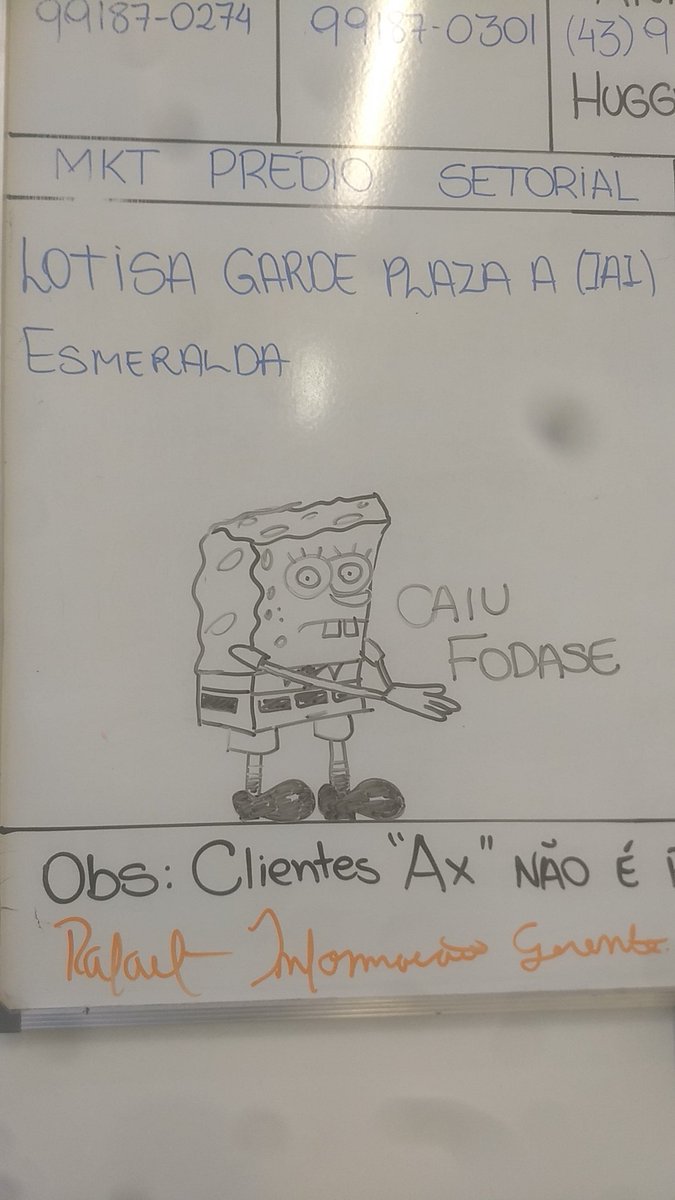 99187-0274 99187-0301 (43)9
HUGG
MKT PRÉDIO SETORIAL
LOTISA GARDE PLAZA A (IAI)
ESMERALDA
CAIU
FODASE
Obs: Clientes "Ax" NÃO É
Rafael Informação Gerente